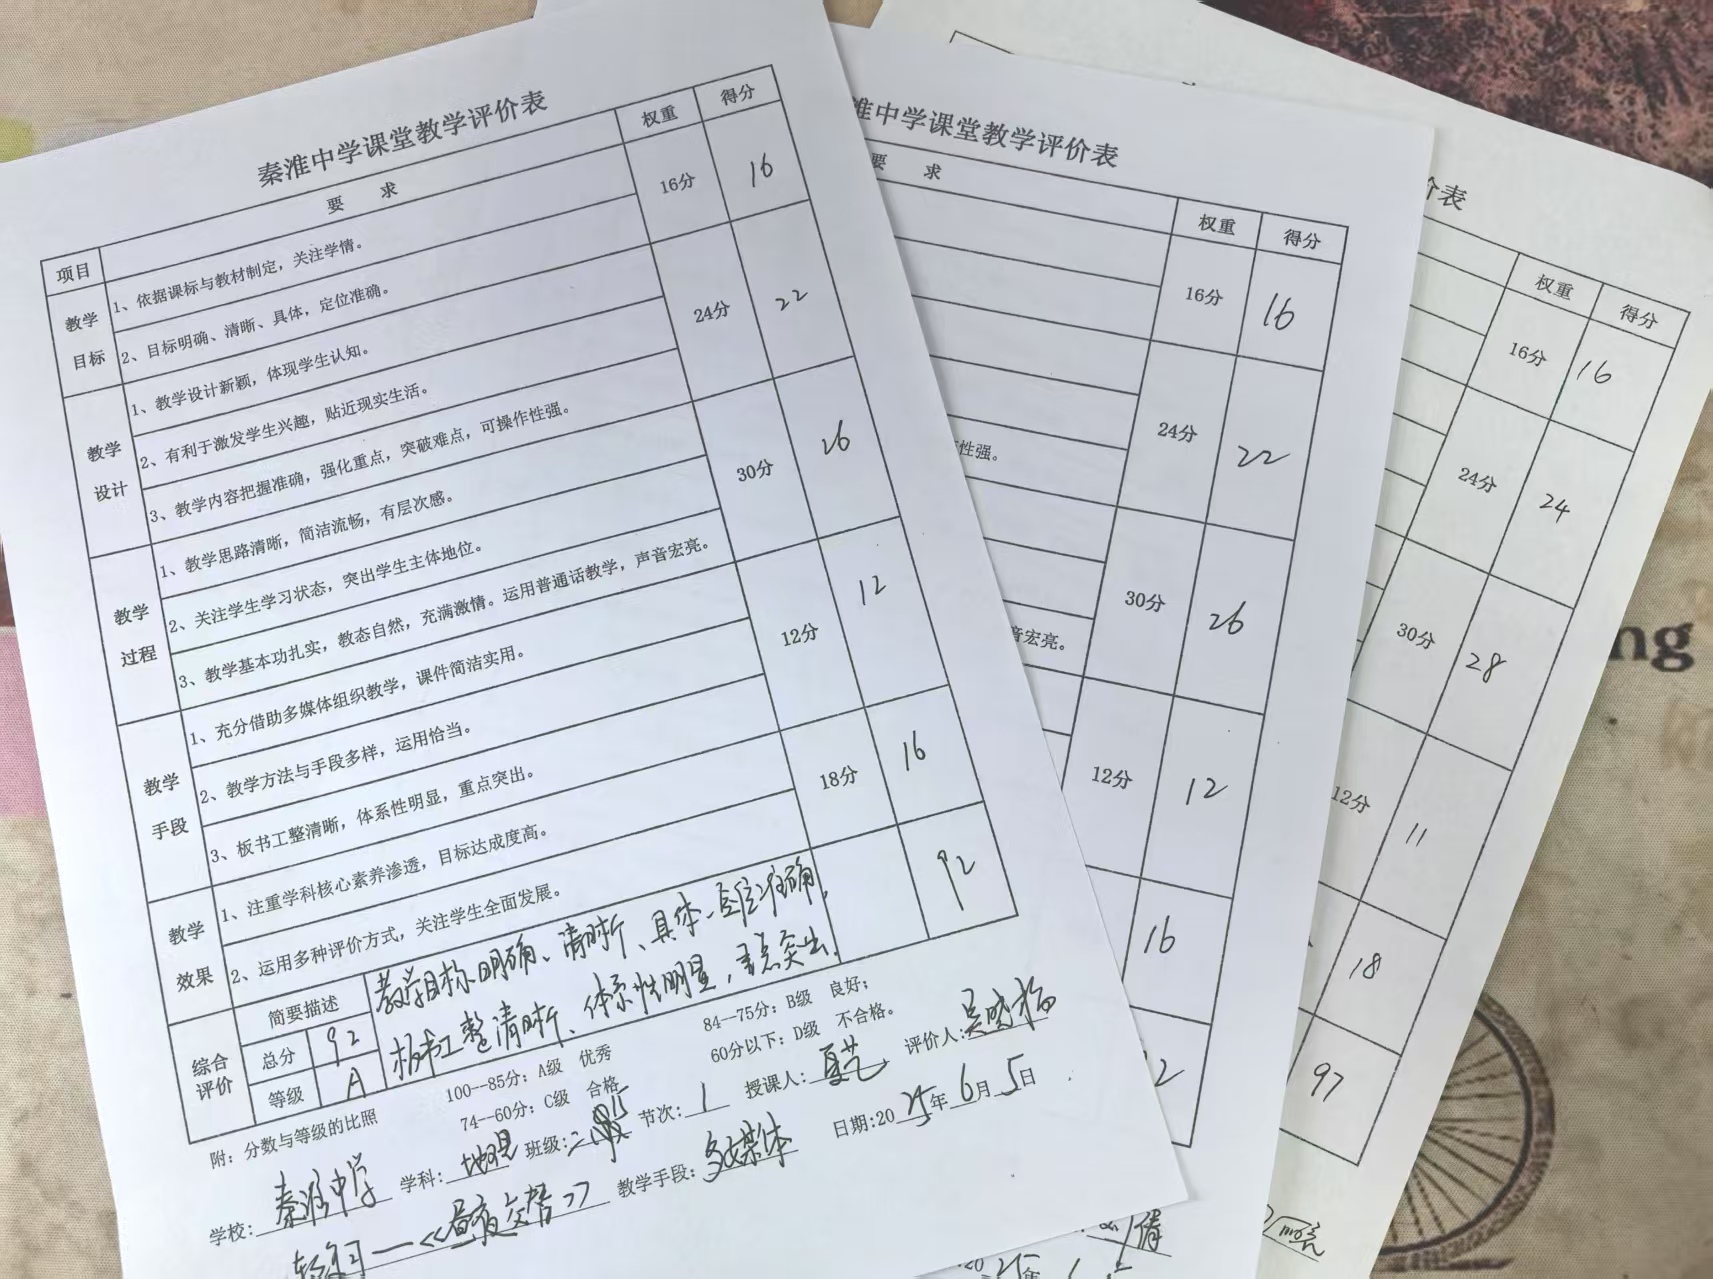 秦淮中学课堂教学评价表
项目 要 求 权重 得分
教学目标 1、依据课标与教材制定，关注学情。 16分 16
2、目标明确、清晰、具体，定位准确。
教学设计 1、教学设计新颖，体现学生认知。 24分 22
2、有利于激发学生兴趣，贴近现实生活。
3、教学内容把握准确，强化重点，突破难点，可操作性强。
教学过程 1、教学思路清晰，简洁流畅，有层次感。 30分 26
2、关注学生学习状态，突出学生主体地位。
3、教学基本功扎实，教态自然，充满激情。运用普通话教学，声音宏亮。
教学手段 1、充分借助多媒体组织教学，课件简洁实用。 12分 12
2、教学方法与手段多样，运用恰当。
3、板书工整清晰，体系性明显，重点突出。
教学效果 1、注重学科核心素养渗透，目标达成度高。 18分 16
2、运用多种评价方式，关注学生全面发展。
综合评价 简要描述 教学目标明确、清晰、具体、定位准确， 92
板书工整清晰、体系性明显，重点突出。
总分 92
等级 A
附：分数与等级的比照 100--85分：A级 优秀 84--75分：B级 良好；
74--60分：C级 合格 60分以下：D级 不合格。
学校：秦淮中学 学科：地理 班级： 节次：1 授课人：夏艺 评价人：
《昼夜交替》 教学手段：多媒体 日期：2025年6月5日
淮中学课堂教学评价表
要 求 权重 得分
16分 16
24分 22
性强。
30分 26
音宏亮。
12分 12
16
2
倩
20 25年 6
价表
权重 得分
16分 16
24分 24
30分 28
12分 11
18
97
ng